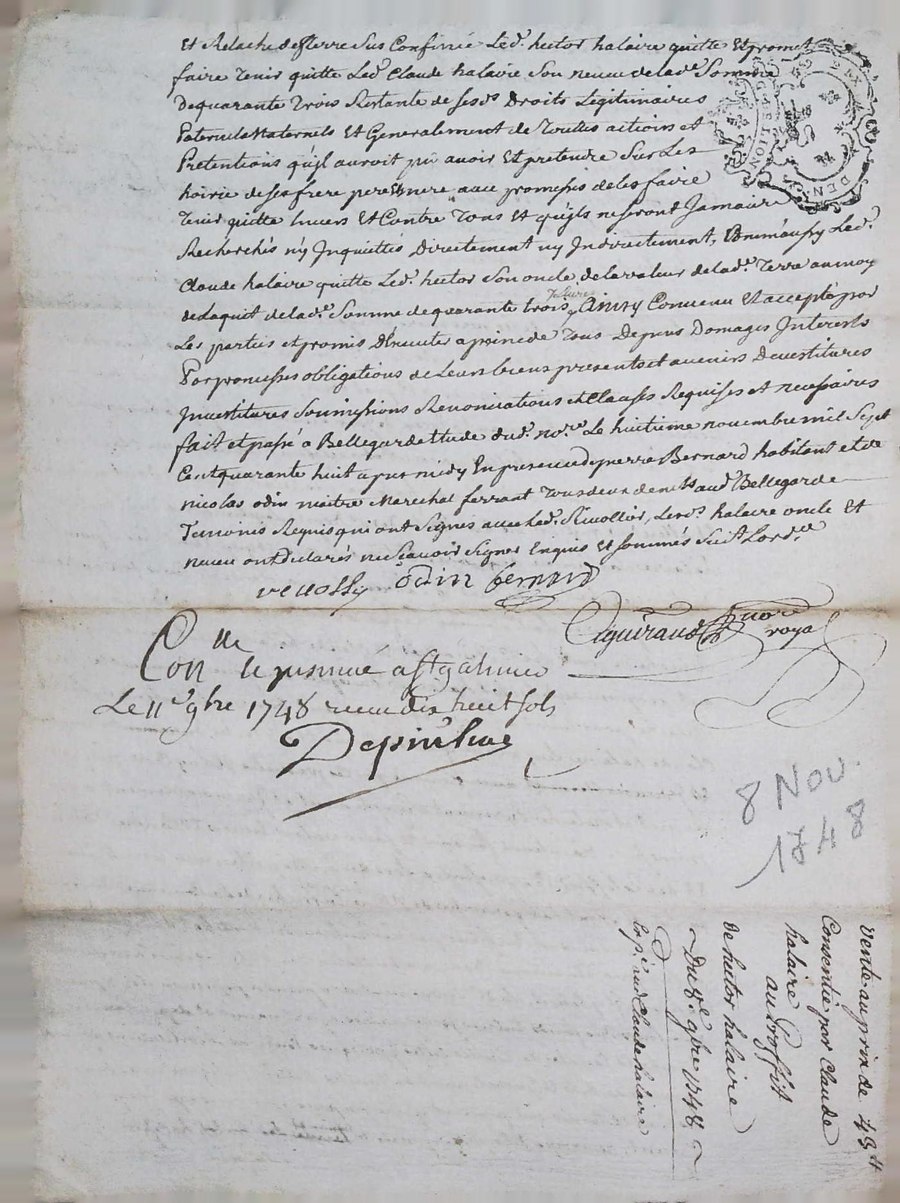 Et Relache de terre sus Confinée Led. hector halaire quitte Et promet
faire tenir quitte Led. Claude halaire son neveu de lad.e Somme
De quarante trois Restante de ses d. Droits Legitimaires
Paternels Maternels Et Generalement de toutes actions et
Pretentions qu'il auroit pu avoir Et pretendre Sur Les
hoirie de ses frere pere Et mere avec promesses de les faire
tenir quitte Envers Et Contre Tous et qu'ils ne seront Jamais
Recherchés n'y Inquiettés Directement ny Indirectement, Led.
Claude halaire quitte Led. hector son oncle de la valeur de lad.e Terre au moy
de Laquit de lad.e Somme de quarante trois livres Ainsy Convenu Et accepté par
Les parties et promis D'Executer a peine de Tous Depens Domages Interests
Par promesses obligations de Leurs biens presents et avenirs Devestitures
Investitures Soumissions Renonciations et Clauses Requises et necessaires
fait et passé a Bellegarde Etude dud. no.re Le huitieme novembre mil Sept
Cent quarante huit apres midy En presence de pierre Bernard habitant et de
nicolas odin maitre Marechal ferrant tous deux dud. Bellegarde
Temoins Requis qui ont Signés avec Led. Les d.s halaire oncle Et
neveu ont Declarés ne Scavoir Signer Enquis Et sommés Suit Lord.ce
odin bernard
Aguiraud No.re royal
Con.lle a St galmier
Le 11.e 9bre 1748 receu dix huit sols
8 Nov.
1748
vente au prix de 43 ll
Consentie par Claude
halaire
au Proffit
de hector halaire
~ Du 8.e 9bre 1748 ~
Exp. aud. Claude halaire